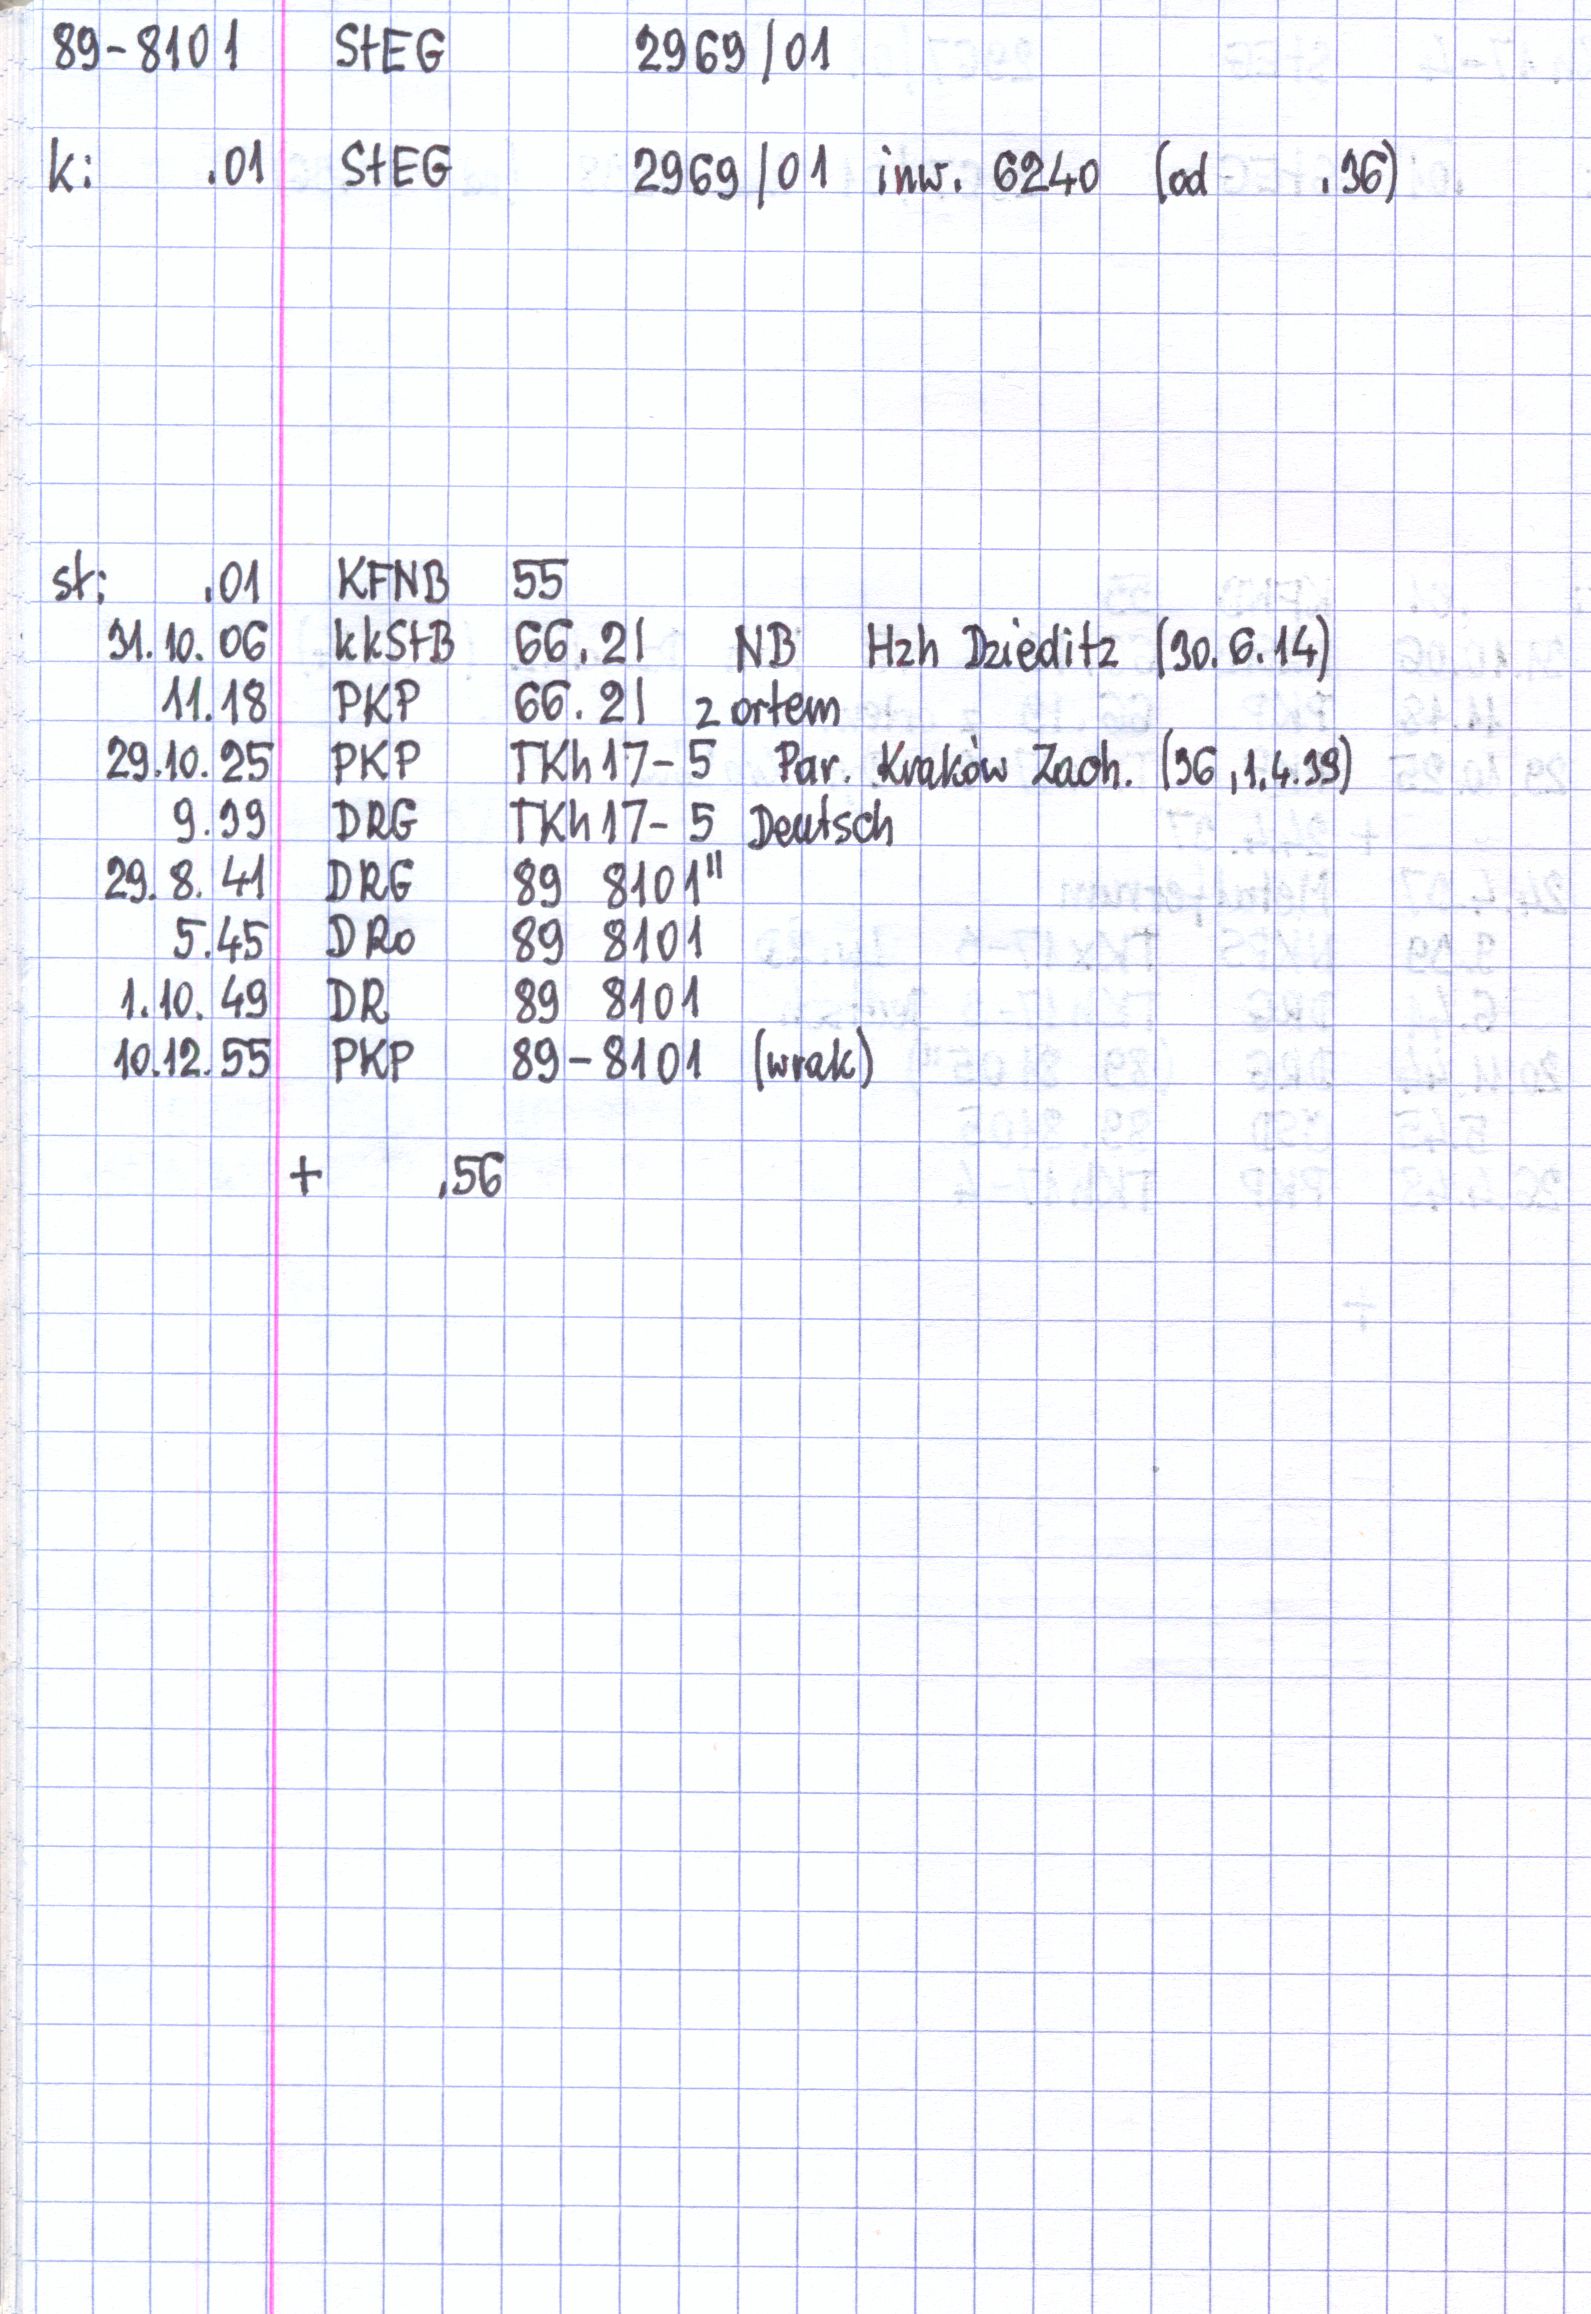 89-8101 StEG 2969/01
k: .01 StEG 2969/01 inw. 6240 (od .36)
st: .01 KFNB 55
31.10.06 kkStB 66.21 NB Hzh Dzieditz (30.6.14)
11.18 PKP 66.21 z ortem
29.10.25 PKP TKh17-5 Par. Kraków Zach. (36, 1.4.39)
9.39 DRG TKh17-5 Deutsch
29.8.41 DRG 89 8101"
5.45 DRo 89 8101
1.10.49 DR 89 8101
10.12.55 PKP 89-8101 (wrak)
+ .56